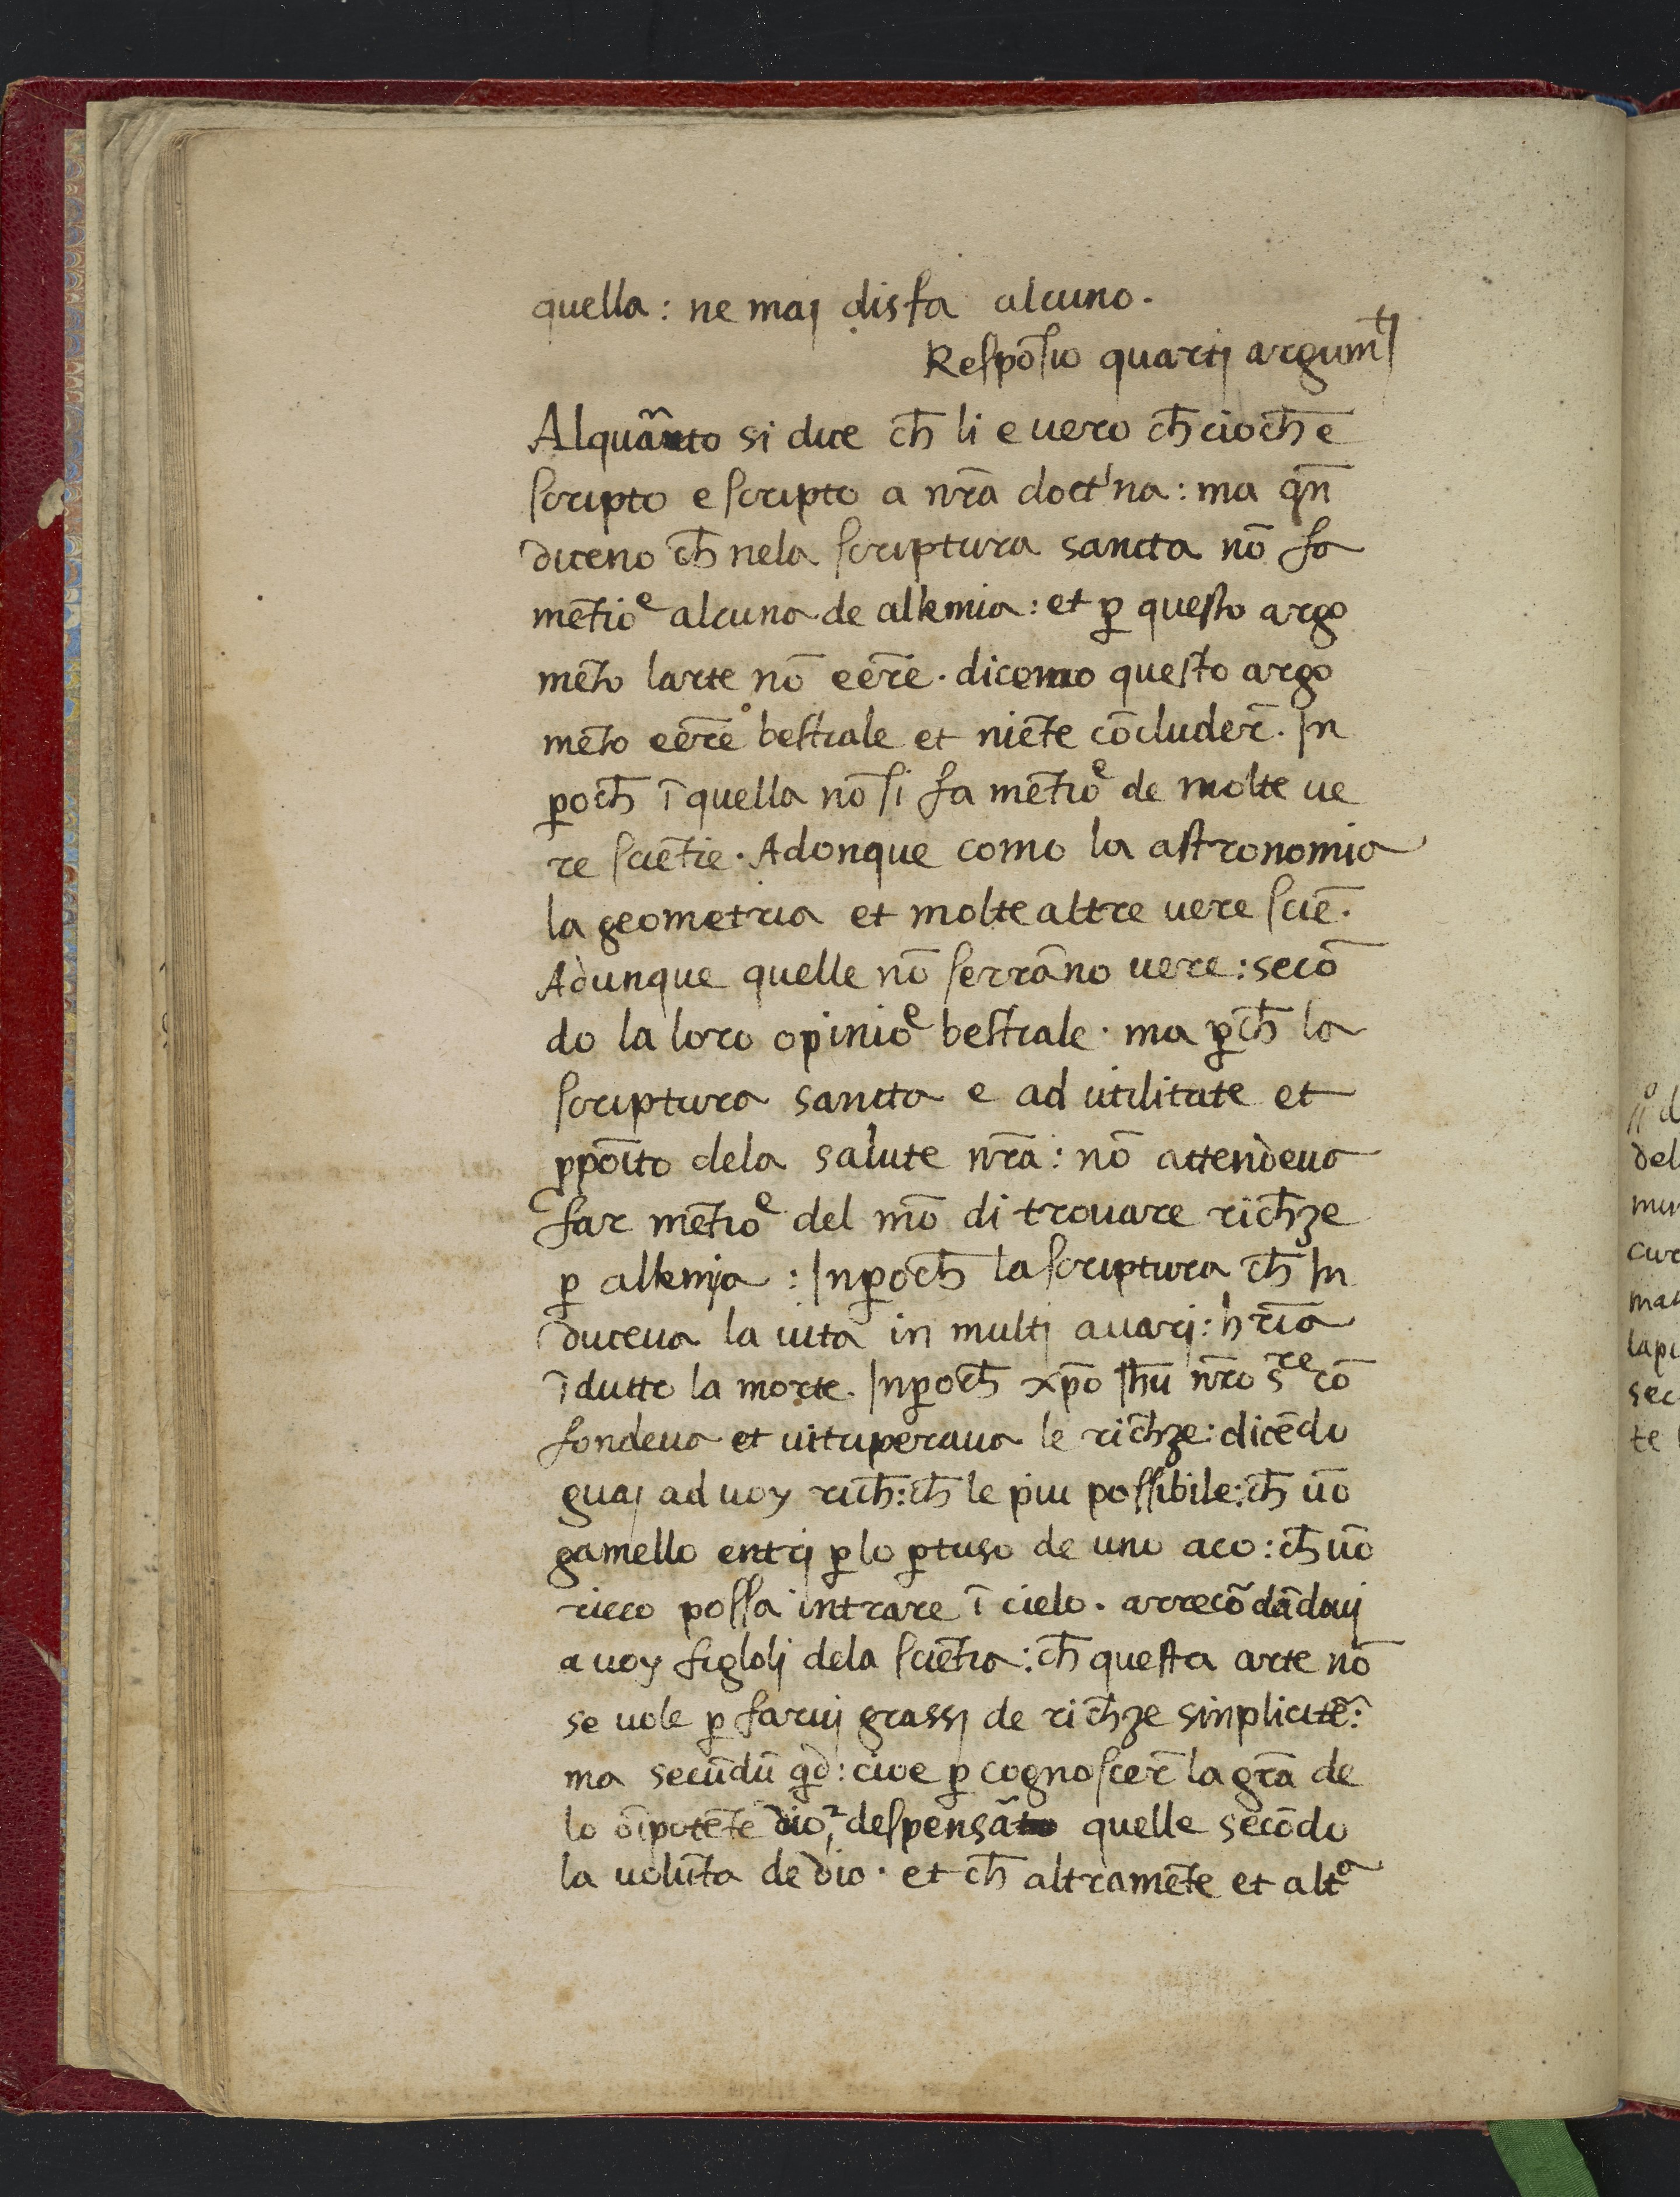 quella: ne maj disfa alcuno.
Respōsio quartj argumt̄j
Alquãnto si dice ch̄ li e uero ch̄ cioch̄ e
scripto e scripto a nr̄a doctina: ma qn̄
diceno ch̄ nela scriptura sancta nō fa
mētioe alcuna de alkemia: et ꝑ questo argo
mēto larte nō eēre. dicemo questo argo
mēto eēre bestiale et niēte cōcluder̄. In
ꝑoch̄ ī quella nō si fa mētioe de molte ue
re sciētie. Adonque como la astronomia
la geometria et molte altre uere sciē.
Adunque quelle nō serrāno uere: secō
do la loro opinioe bestiale. ma ꝑch̄ la
scriptura sancta e ad utilitate et
ꝓpoīto dela salute nr̄a: nō attendeua
far mētioe del mō di trouare rich̄ze
ꝑ alkemja: Inꝑoch̄ la scriptura ch̄ In
duceua la uita in multj auarj: hr̄ia
īdutto la morte. Inꝑoch̄ xp̄o Ih̄u nr̄o sre cō
fondeua et uituperaua le rich̄ze: dicēdo
guaj ad uoy rich̄: ch̄ le piu possibile: ch̄ ūo
gamello entrj ꝑ lo ꝑtuso de uno aco: ch̄ ūo
ricco possa intrare ī cielo. arrecōdādouj
a uoy figlolj dela sciētia: ch̄ questa arte nō
se uole ꝑ faruj grassj de rich̄ze sinplicitē:
ma secūdū qd̄: cioe ꝑ cognoscer̄ la gr̄a de
lo oīpotēte dio, despensāto quelle secōdo
la uolūta de dio. et ch̄ altramēte et alta